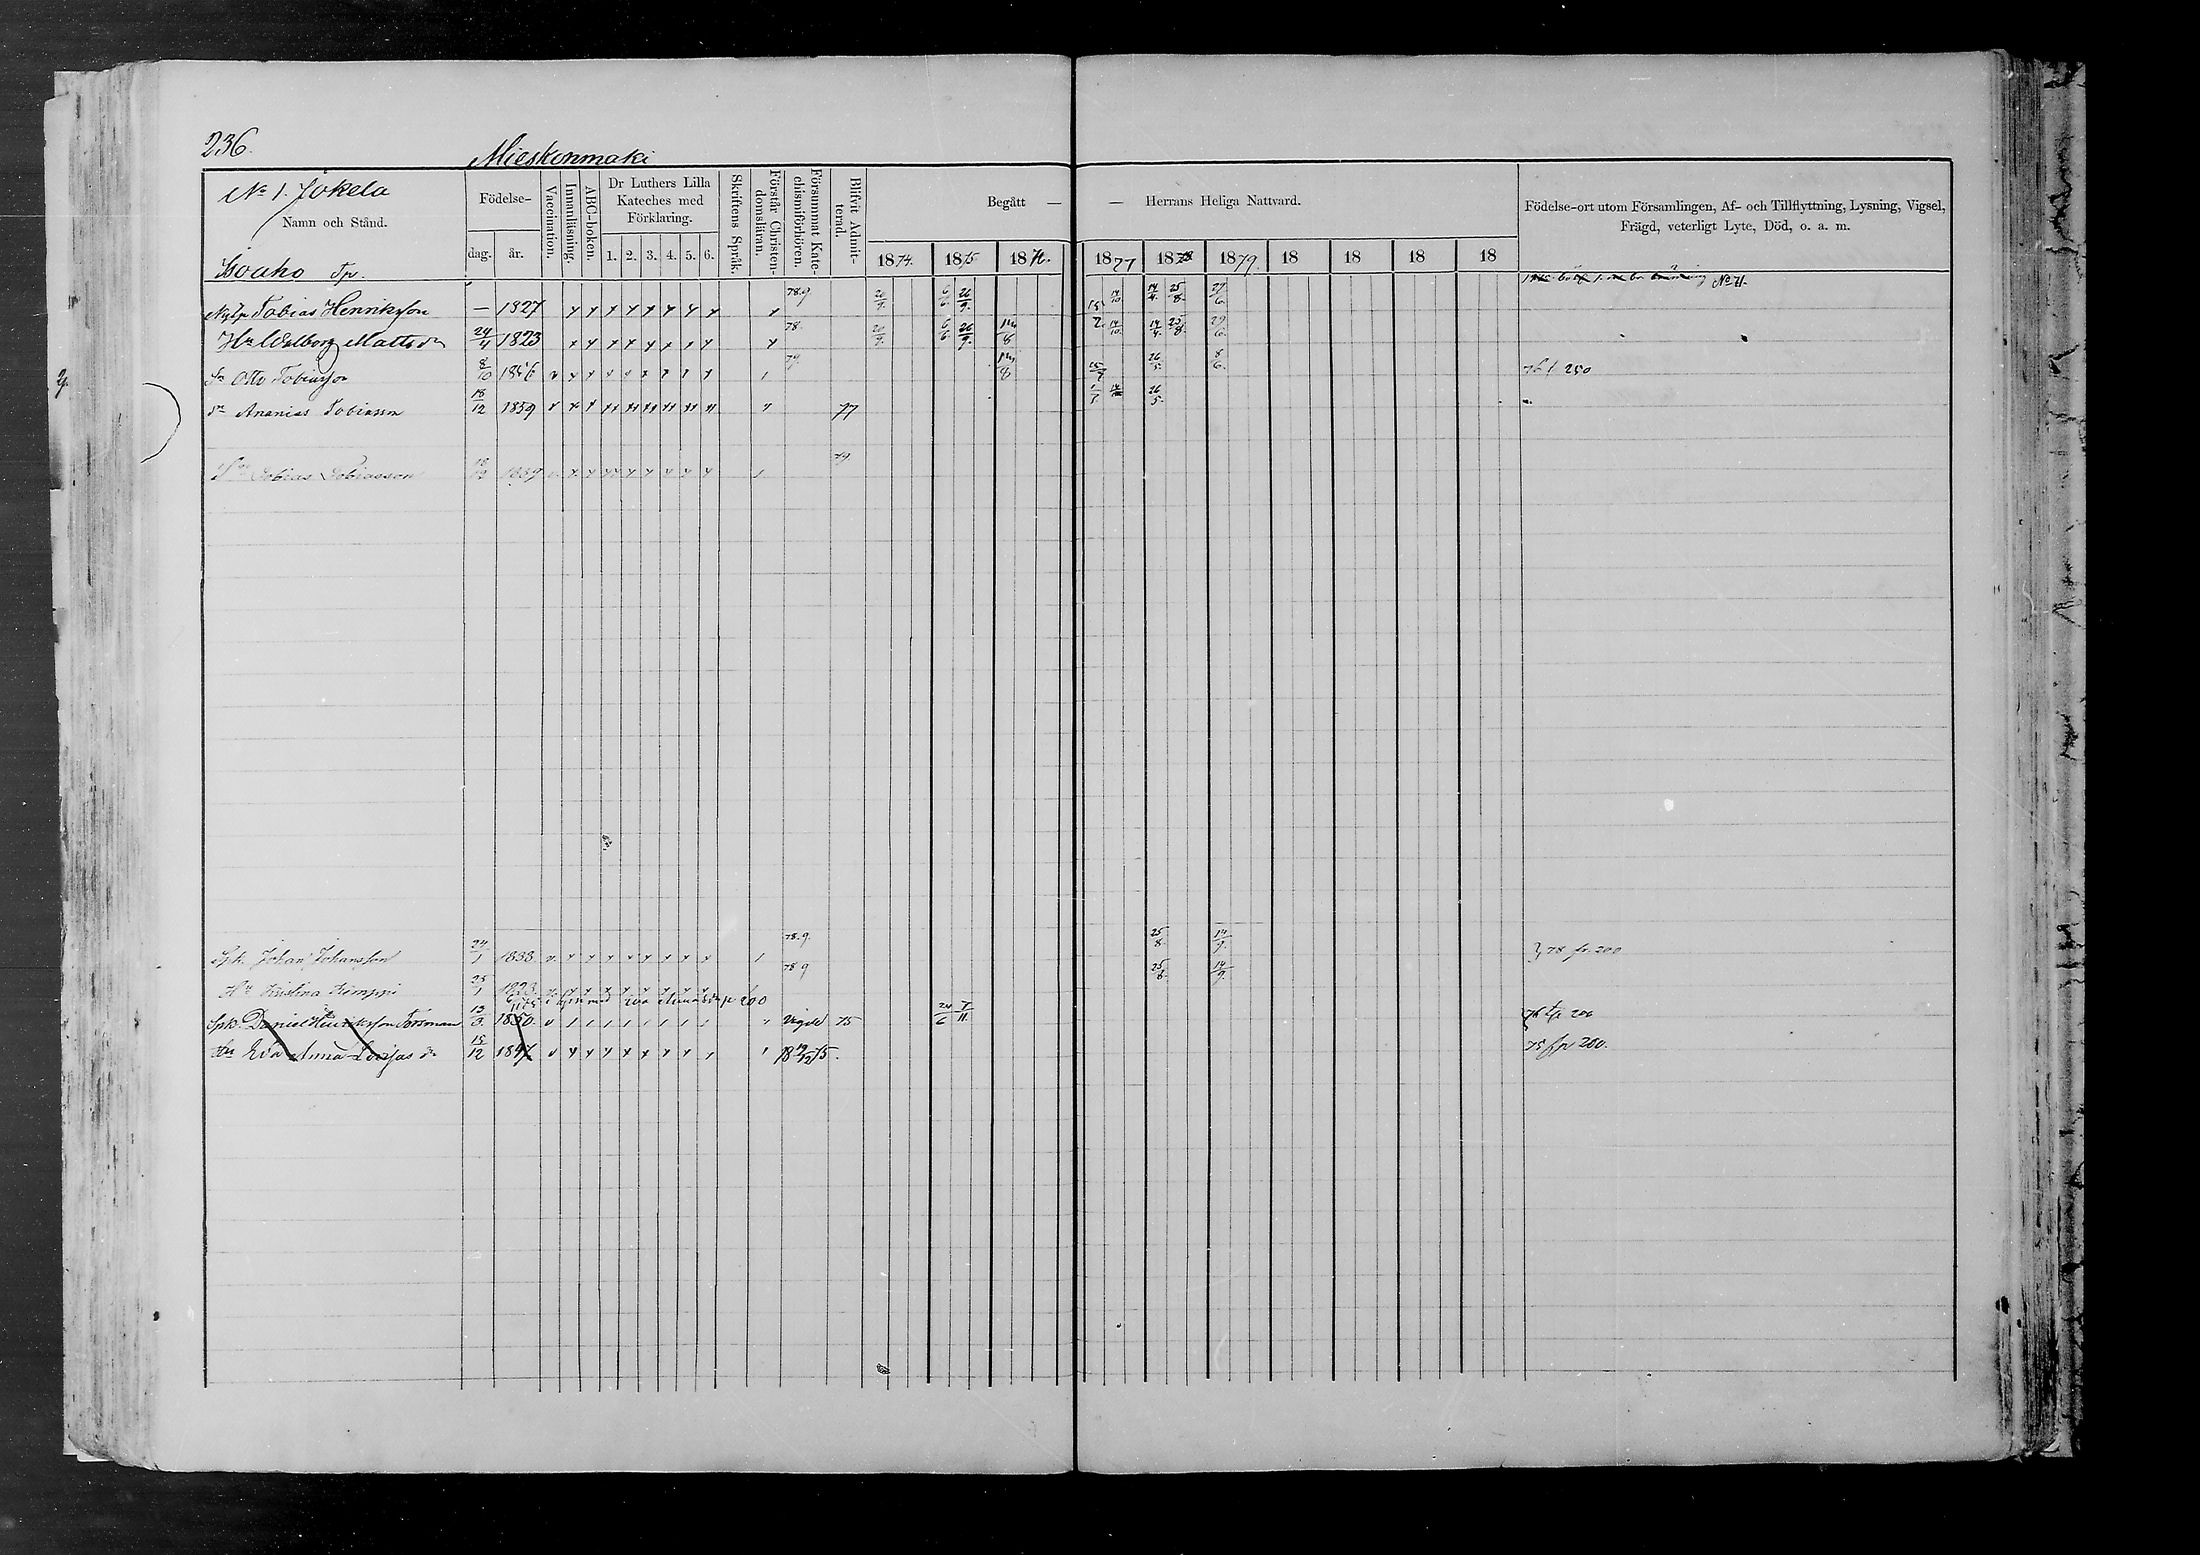 236.
Mieskonmaki
No 1. Jokela
Namn och Stånd.
Isoaho Tp.
Födelse-
dag. år.
Vaccination.
Innanläsning.
ABC-boken.
Dr Luthers Lilla
Kateches med
Förklaring.
1. 2. 3. 4. 5. 6.
Skriftens Språk.
Förstår Christen-
domsläran.
Försummat Kate-
chismiförhören.
Blifvit Admit-
terad.
Begått — — Herrans Heliga Nattvard.
1874. 1875 187 1877 1878 1879. 18 18 18 18
Födelse-ort utom Församlingen, Af- och Tillflyttning, Lysning, Vigsel,
Frägd, veterligt Lyte, Död, o. a. m.
No 4.
Tobias Henriksson — 1827 78.9 20/9. 6/6. 26/9. 14/10. 14/4. 25/8. 29/6.
Hu Walborg Matts dr 24/4 1823 78. 20/9. 6/6. 26/9. 14/10 14/4. 25/8. 29/6.
Sn Otto Tobiasson 8/10 1856 79. 26/5. 8/6. 76 f 250
Sn Ananias Tobiasson 18/12 1859 77 26/5.
Sn Tobias Tobiasson 18/12 1859 79.
Spk Johan Johansson 24/1 1833. 78.9. 25/8. 14/9. 78 fr 200
Hu Kristina Kimppi 25/1 1823. 78 9 25/8. 14/9.
Eva Anna p 200
Spk. Daniel Henriksson Forsman 13/3. 1850. Vigde 75 24/6 7/11. 76 fp 200
Hu Eva Anna Lovisas dr 15/12 1847 18 19/12 75. 75 fp 200.